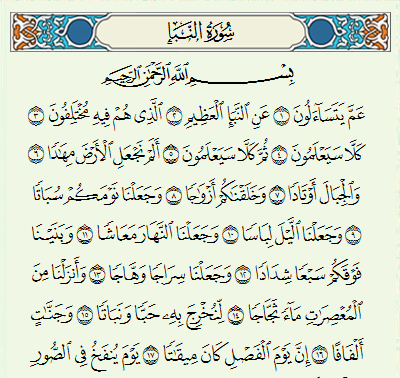 سُورَةُ النَّبَإِ
بِسْمِ اللَّهِ الرَّحْمَٰنِ الرَّحِيمِ
عَمَّ يَتَسَآءَلُونَ ١ عَنِ النَّبَإِ الْعَظِيمِ ٢ الَّذِى هُمْ فِيهِ مُخْتَلِفُونَ ٣
كَلَّا سَيَعْلَمُونَ ٤ ثُمَّ كَلَّا سَيَعْلَمُونَ ٥ أَلَمْ نَجْعَلِ الْأَرْضَ مِهَٰدًا ٦
وَالْجِبَالَ أَوْتَادًا ٧ وَخَلَقْنَٰكُمْ أَزْوَٰجًا ٨ وَجَعَلْنَا نَوْمَكُمْ سُبَاتًا
٩ وَجَعَلْنَا الَّيْلَ لِبَاسًا ١٠ وَجَعَلْنَا النَّهَارَ مَعَاشًا ١١ وَبَنَيْنَا
فَوْقَكُمْ سَبْعًا شِدَادًا ١٢ وَجَعَلْنَا سِرَاجًا وَهَّاجًا ١٣ وَأَنزَلْنَا مِنَ
الْمُعْصِرَٰتِ مَآءً ثَجَّاجًا ١٤ لِّنُخْرِجَ بِهِۦ حَبًّا وَنَبَاتًا ١٥ وَجَنَّٰتٍ
أَلْفَافًا ١٦ إِنَّ يَوْمَ الْفَصْلِ كَانَ مِيقَٰتًا ١٧ يَوْمَ يُنفَخُ فِى الصُّورِ